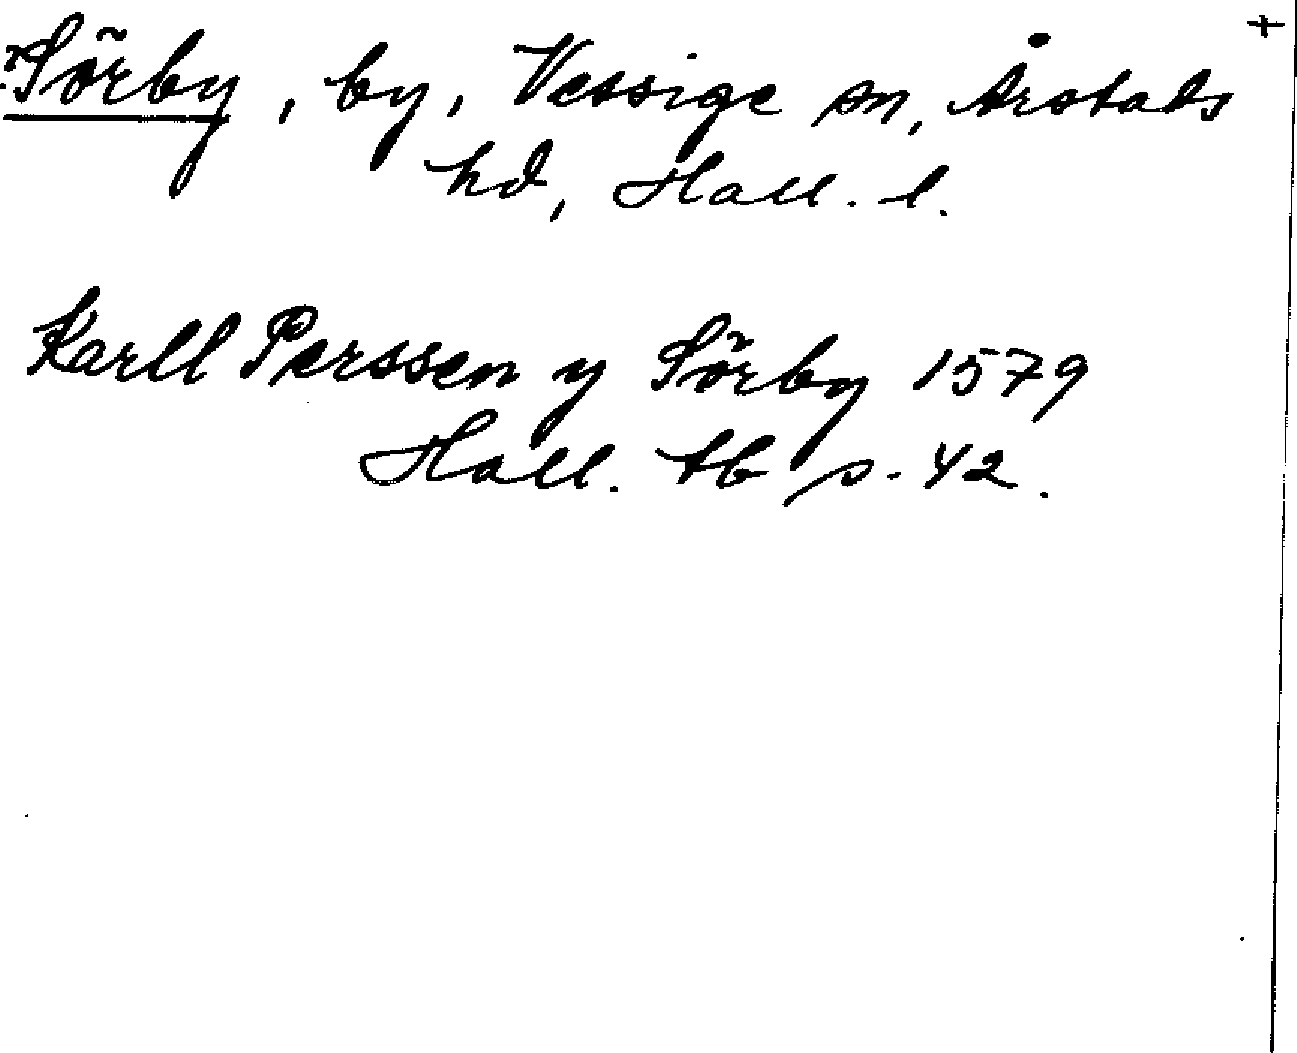 ?Sörby, by, Vessige sn, Årstads
hd, Hall. l.
Karll Perssen y Sörby 1579
Hall. tb s. 42.